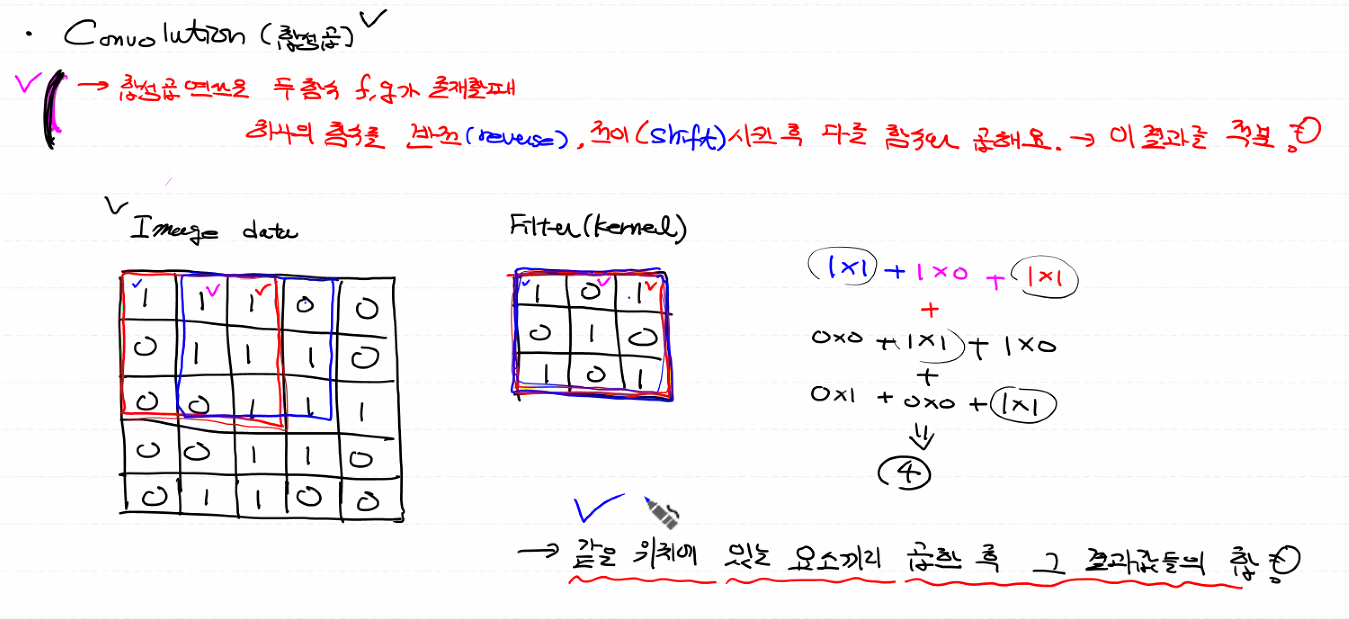 · Convolution (합성곱)
→ 합성곱 연산은 두 함수 f, g가 존재할때
하나의 함수를 반전(reverse), 전이(shift)시킨 후 다른 함수와 곱해요. → 이 결과를 적분!
Image data
Filter(kernel)
1 1 1 0 0
0 1 1 1 0
0 0 1 1 1
0 0 1 1 0
0 1 1 0 0
1 0 1
0 1 0
1 0 1
1×1 + 1×0 + 1×1
+
0×0 + 1×1 + 1×0
+
0×1 + 0×0 + 1×1
⇓
4
→ 같은 위치에 있는 요소끼리 곱한 후 그 결과값들의 합!